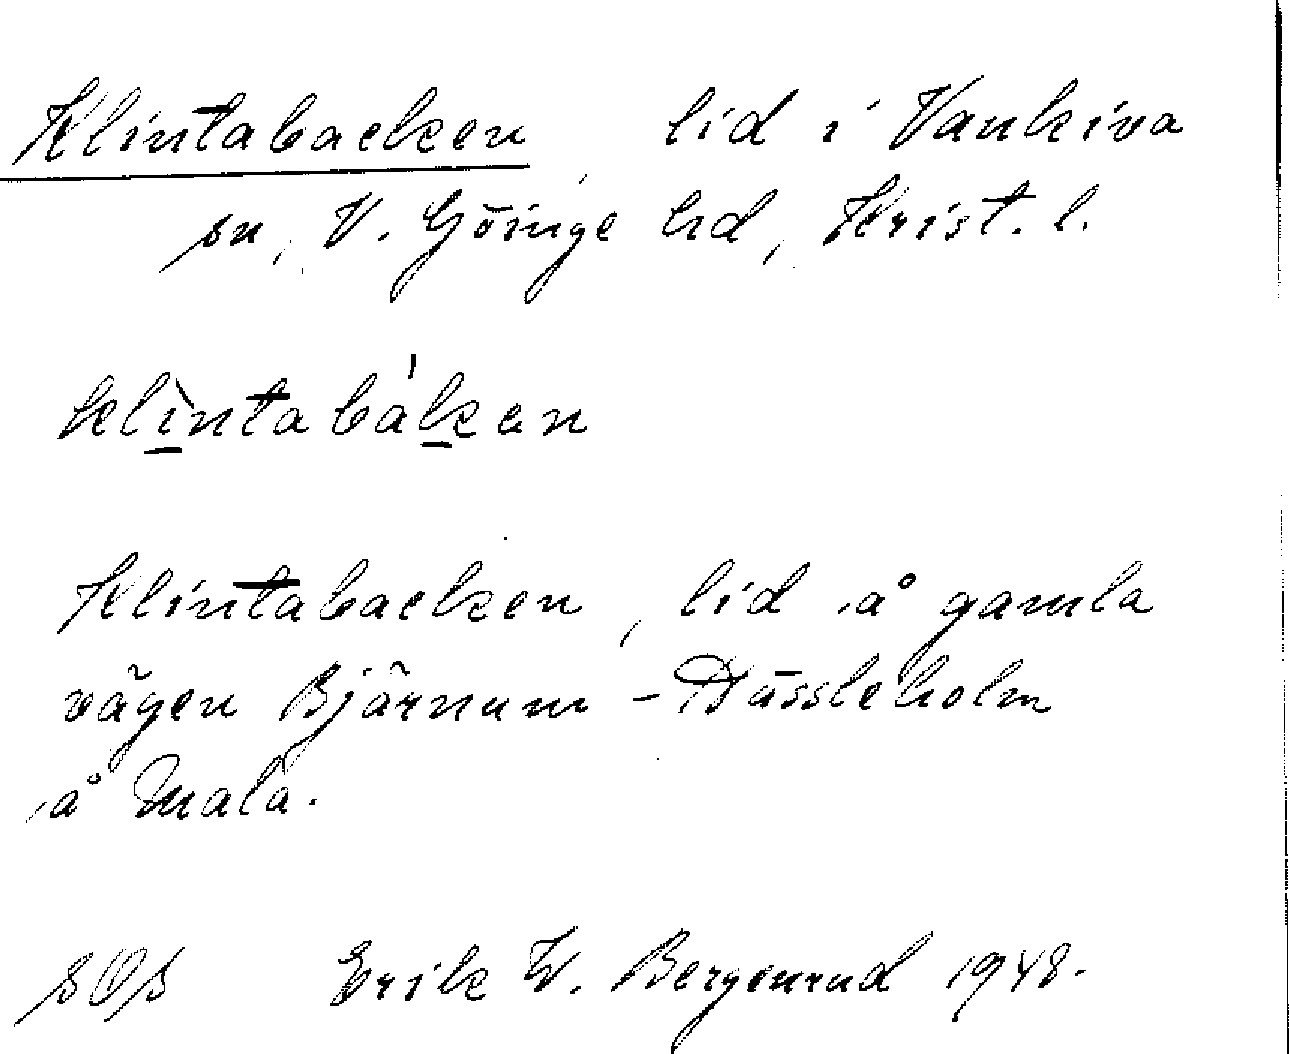 Klintabacken lid i Vankiva
sn, V. Göinge hd, Krist. l.
klìntabákan
Klintabacken, lid å gamla
vägen Bjärnum - Hässleholm
å Mala.
SOS Erik W. Bergenrud 1948.